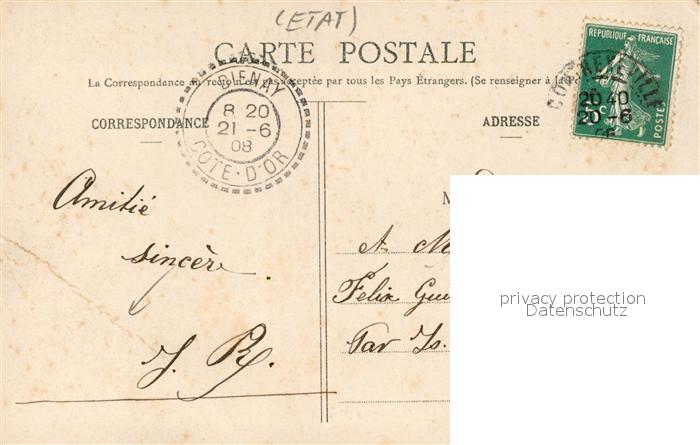 (ETAT)
CARTE POSTALE
La Correspondance au recto n'est pas acceptée par tous les Pays Étrangers. (Se renseigner à la
CORRESPONDANCE
ADRESSE
DIENAY
8 20
21 -6
08
COTE-D'OR
REPUBLIQUE FRANÇAISE
POSTES
20 40
20 -6
Amitié
sincère.
J. R.
M
A M
Felix Gui
Par Is.
privacy protection
Datenschutz